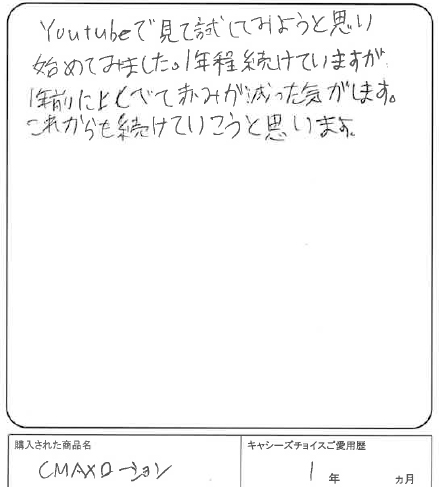 Youtubeで見て試してみようと思い
始めてみました。1年程続けていますが
1年前に比べて赤みが減った気がします。
これからも続けていこうと思います。
購入された商品名
キャシーズチョイスご愛用歴
CMAXローション
1年 ヵ月